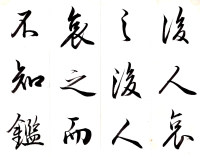 後人哀
之後人
哀之而
不知鑑